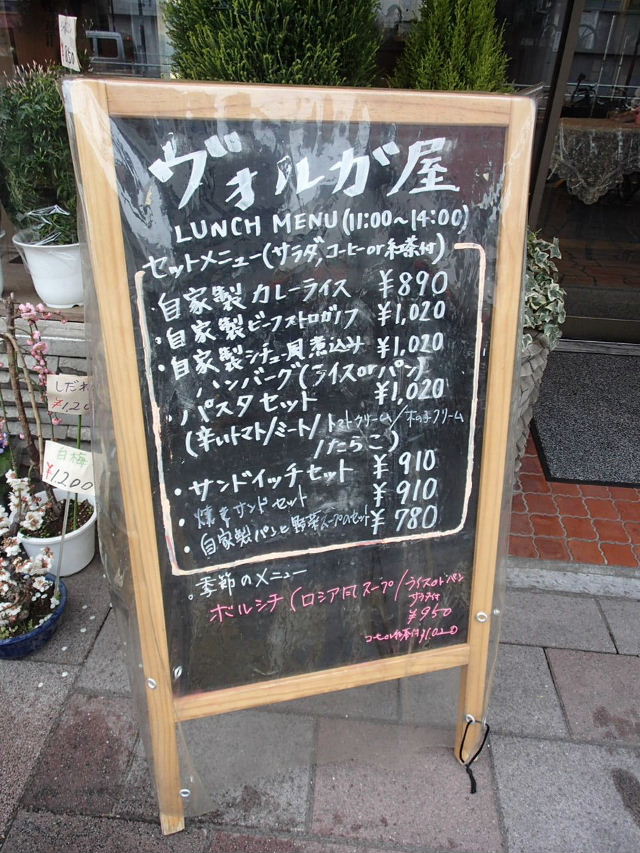 ヴォルガ屋
LUNCH MENU(11:00～14:00)
セットメニュー(サラダ,コーヒーor紅茶付)
・自家製カレーライス ¥890
・自家製ビーフストロガノフ ¥1,020
・自家製シチュー風煮込み ¥1,020
ハンバーグ(ライスorパン)
・パスタセット ¥1,020
(辛いトマト/ミート/トマトクリーム/木の子クリーム
/たらこ)
・サンドイッチセット ¥910
・焼きサンドセット ¥910
・自家製パンと野菜スープのセット ¥780
・季節のメニュー
ボルシチ(ロシア風スープ/ライスorパン
サラダ付
¥950
コーヒーor紅茶付¥1,020
しだれ
¥120
白梅
¥1200